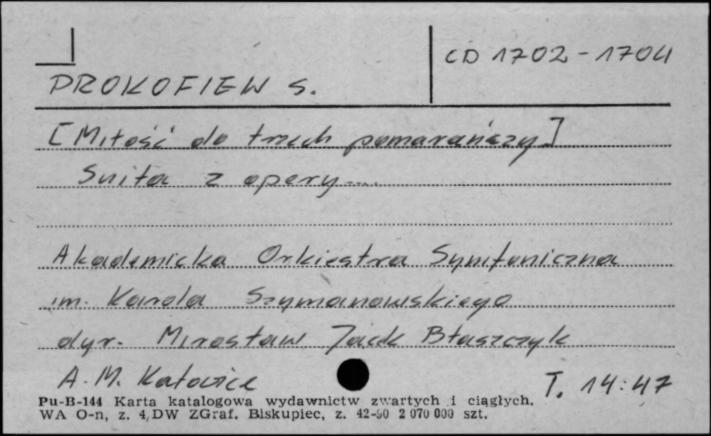 CD 1702-1704
PROKOFIEW S.
[Miłość do trzech pomarańczy]
Suita z opery...
Akademicka Orkiestra Symfoniczna
im. Karola Szymanowskiego
dyr. Mirosław Jacek Błaszczyk
A.M. Katowice T. 14:47
Pu-B-144 Karta katalogowa wydawnictw zwartych i ciągłych.
WA O-n, z. 4, DW ZGraf. Biskupiec, z. 42-90 2 070 000 szt.